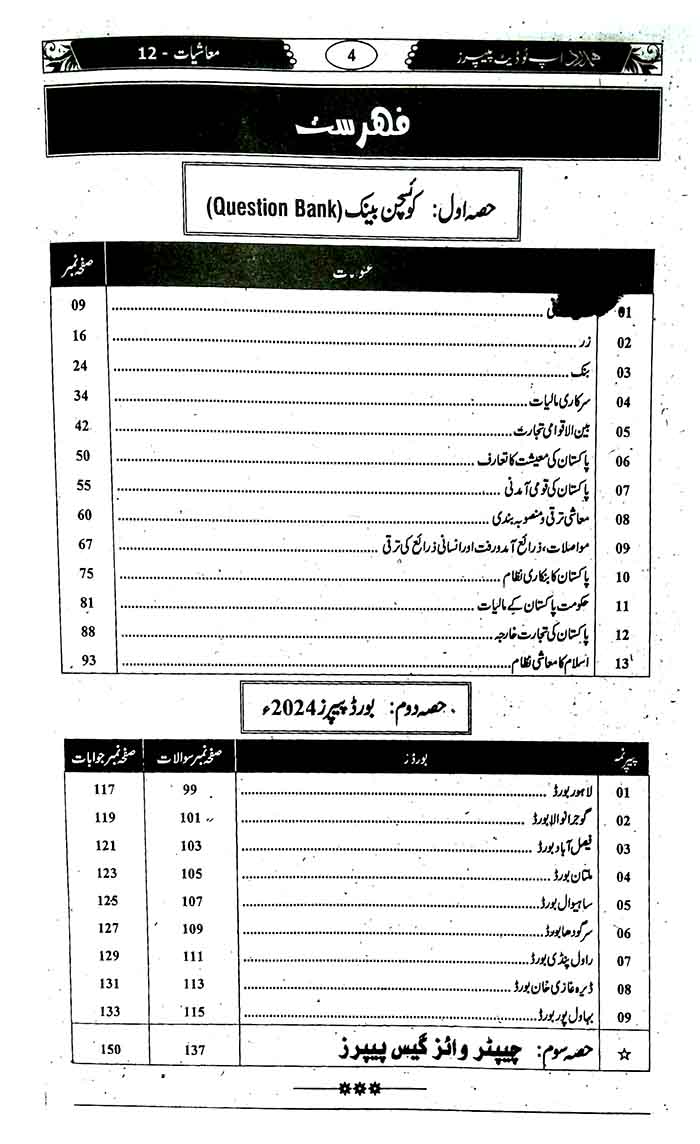 اپ ٹو ڈیٹ پیپرز 4 معاشیات - 12
فہرست
حصہ اول: کوئسچن بینک (Question Bank)
صفحہ نمبر
01 09
02 زر 16
03 بنک 24
04 سرکاری مالیات 34
05 بین الاقوامی تجارت 42
06 پاکستان کی معیشت کا تعارف 50
07 پاکستان کی قومی آمدنی 55
08 معاشی ترقی و منصوبہ بندی 60
09 مواصلات، ذرائع آمدورفت اور انسانی ذرائع کی ترقی 67
10 پاکستان کا بنکاری نظام 75
11 حکومت پاکستان کے مالیات 81
12 پاکستان کی تجارت خارجہ 88
13 اسلام کا معاشی نظام 93
حصہ دوم: بورڈ پیپرز 2024ء
بورڈز صفحہ نمبر سوالات صفحہ نمبر جوابات
01 لاہور بورڈ 99 117
02 گوجرانوالا بورڈ 101 119
03 فیصل آباد بورڈ 103 121
04 ملتان بورڈ 105 123
05 ساہیوال بورڈ 107 125
06 سرگودھا بورڈ 109 127
07 راولپنڈی بورڈ 111 129
08 ڈیرہ غازی خان بورڈ 113 131
09 بہاول پور بورڈ 115 133
☆ حصہ سوم: چیپٹر وائز گیس پیپرز 137 150